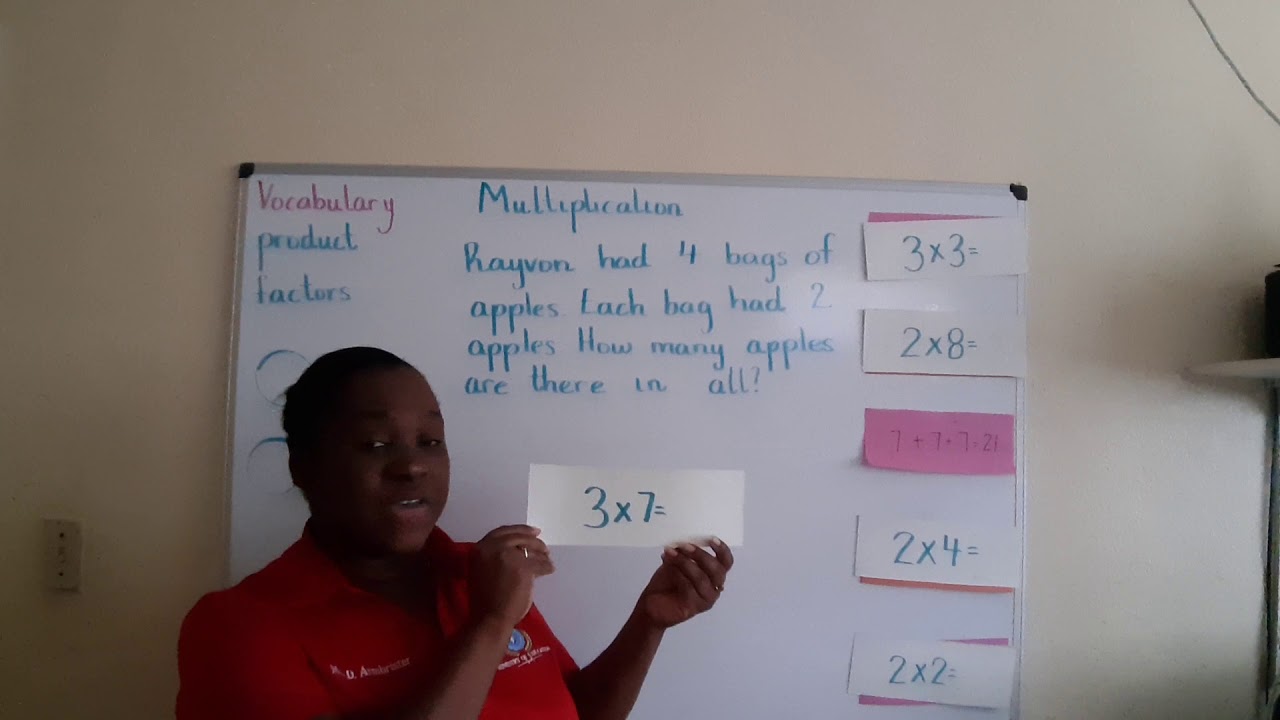 Vocabulary
product
factors
Multiplication
Rayvon had 4 bags of
apples. Each bag had 2
apples How many apples
are there in all?
3x7=
3x3=
2x8=
7+7+7=21
2x4=
2x2=
D. Armbrister